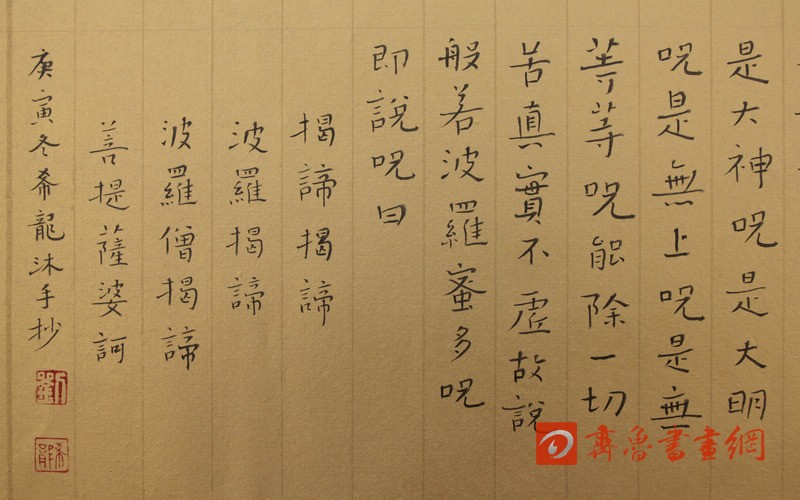 是大神咒是大明
咒是無上咒是無
等等咒能除一切
苦真實不虛故說
般若波羅蜜多咒
即說咒曰
揭諦揭諦
波羅揭諦
波羅僧揭諦
菩提薩婆訶
庚寅冬希龍沐手抄
齊魯書畫網